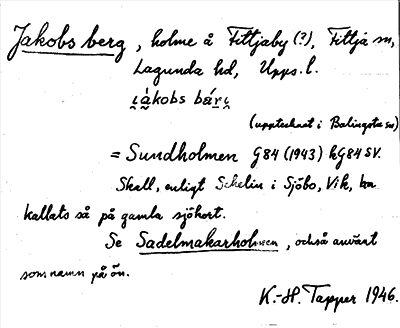 Jakobsberg, holme å Fittjaby (?), Fittja sn,
Lagunda hd, Upps. l.
i̯à̰kobs bár̯i̯
(upptecknat i Balingsta sn)
= Sundholmen G84 (1943) kG84 SV.
Skall, enligt Schelin i Sjöbo, Vik, ha
kallats så på gamla sjökort.
Se Sadelmakarholmen, också använt
som namn på ön.
K.-H. Tapper 1946.